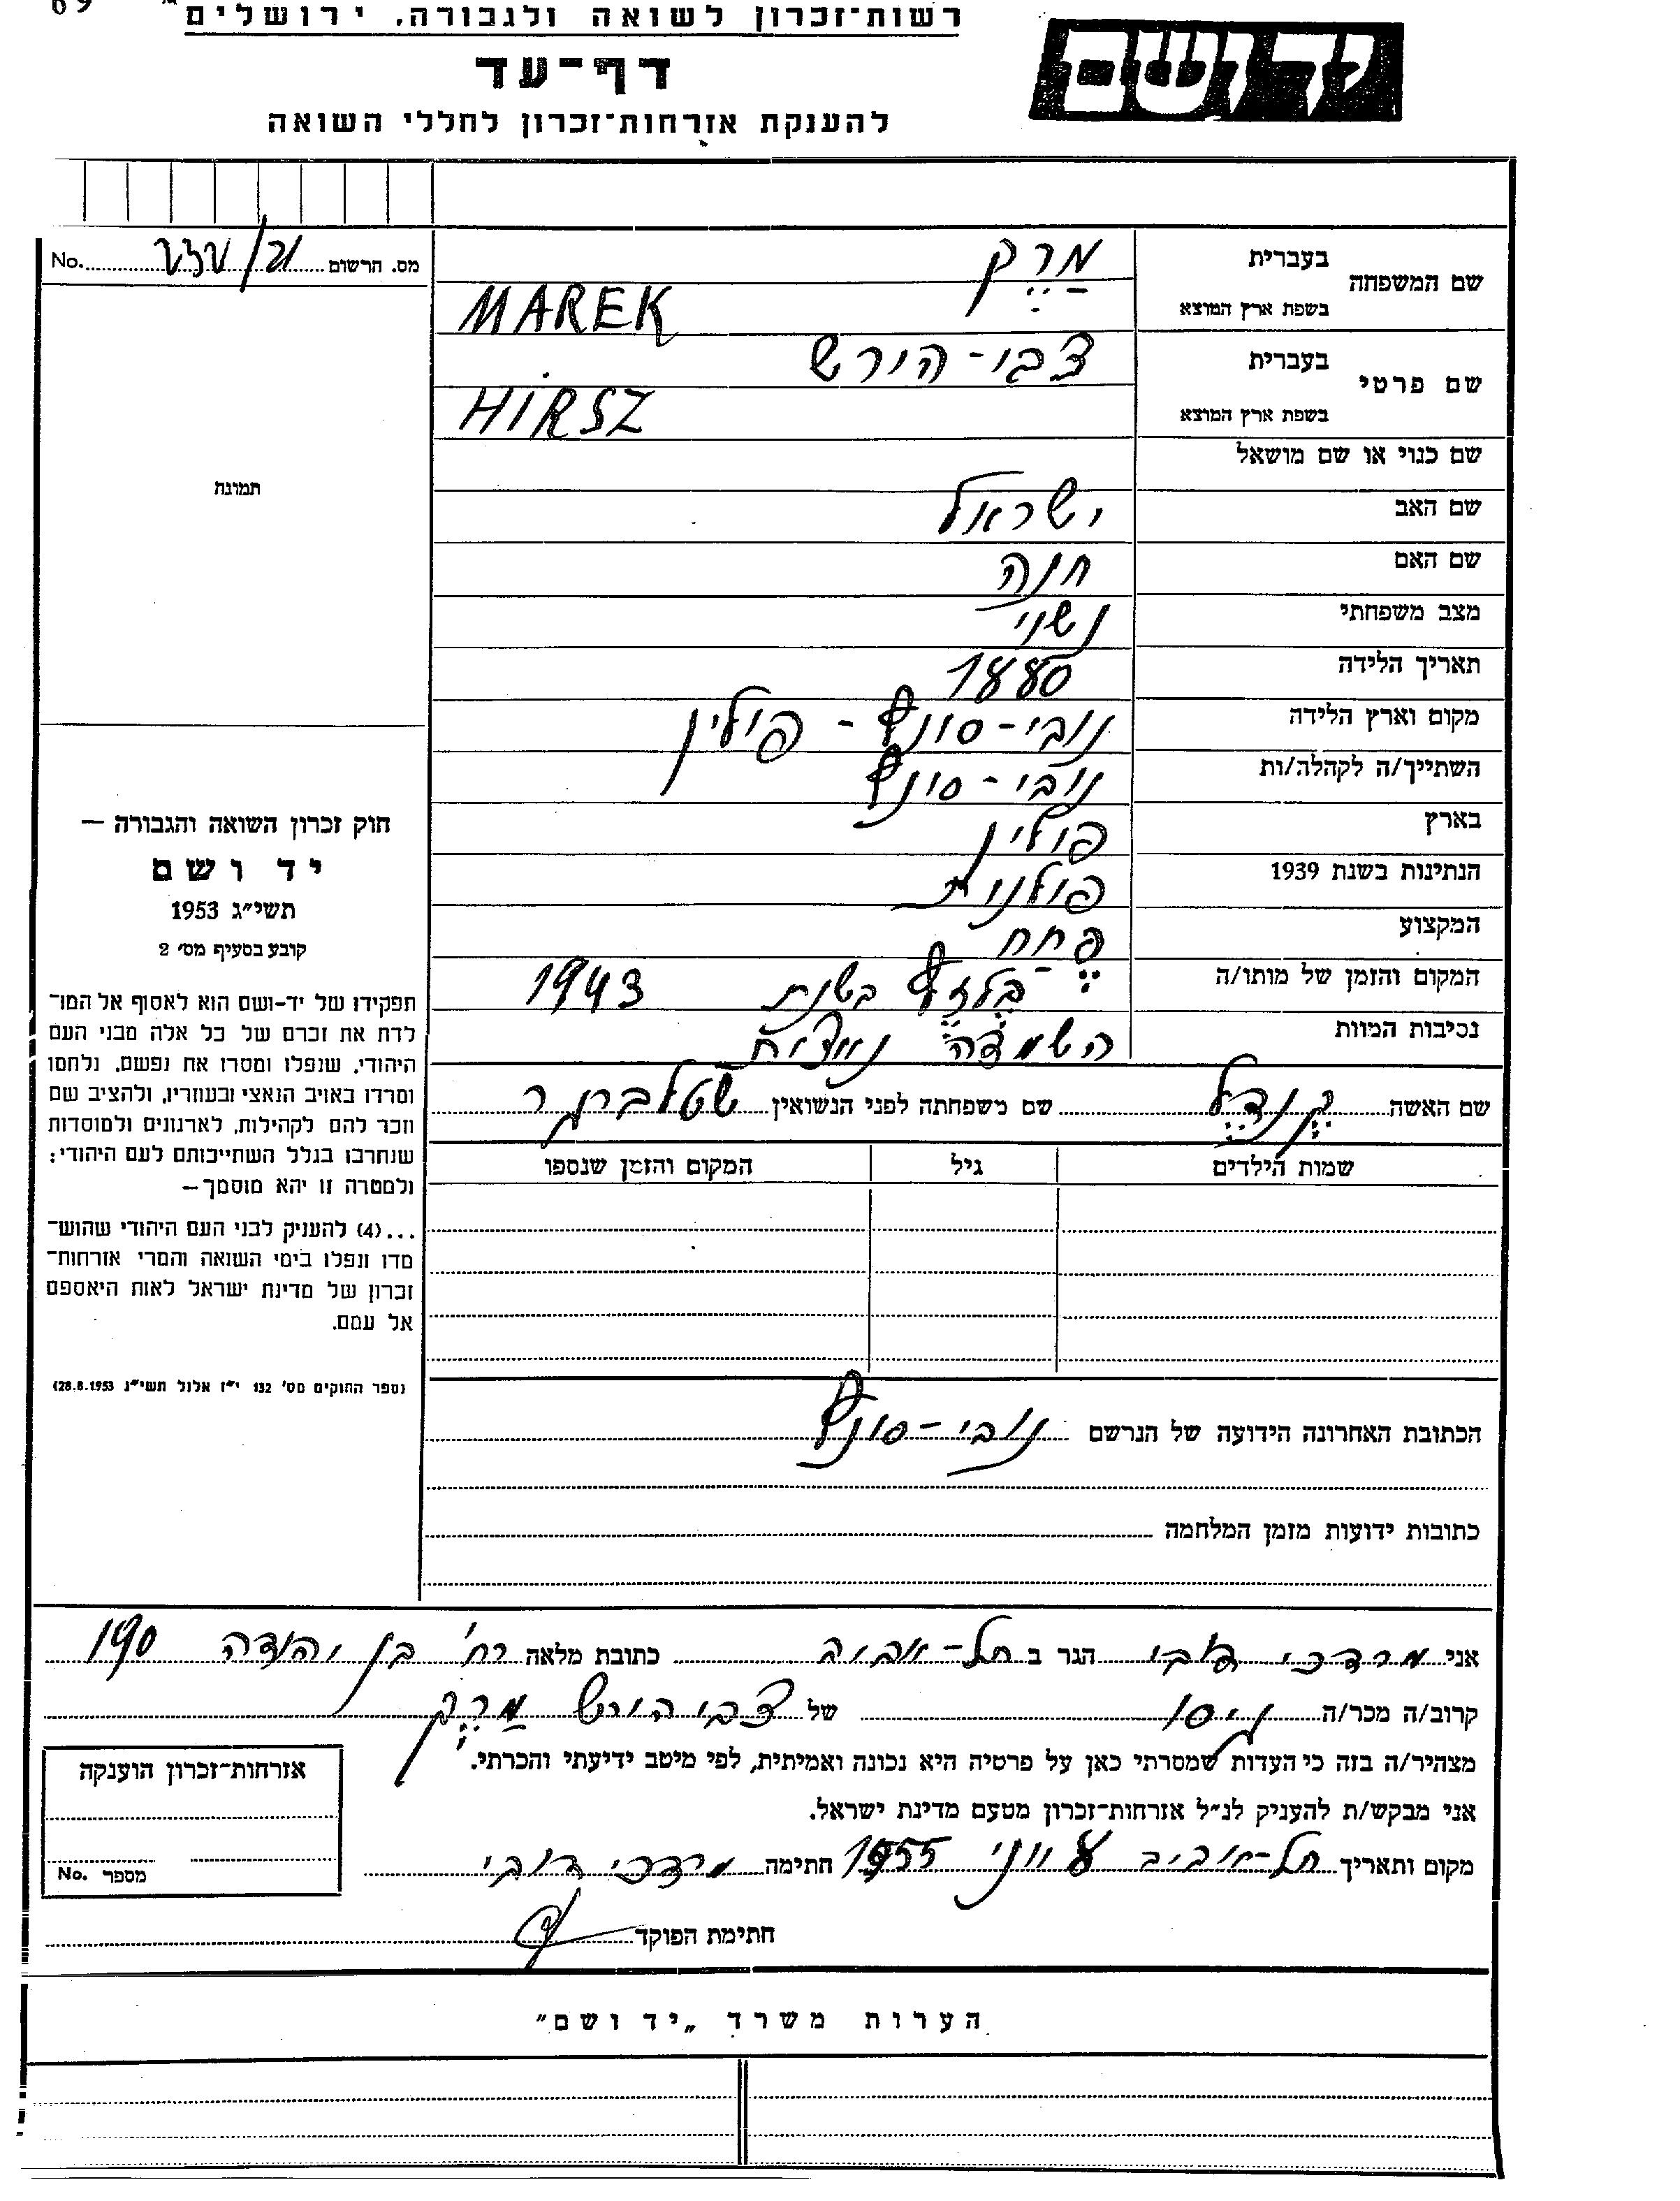 רשות־זכרון לשואה ולגבורה. ירושלים
69
ידושם
דף־עד
להענקת אזרחות־זכרון לחללי השואה
מס. הרשום 21/ No.
שם המשפחה
בעברית מַרֶק
בשפת ארץ המוצא MAREK
שם פרטי
בעברית צבי-הירש
בשפת ארץ המוצא HIRSZ
שם כנוי או שם מושאל
שם האב ישראל
שם האם חנה
מצב משפחתי נשוי
תאריך הלידה 1880
מקום וארץ הלידה נובי-סונץ - פולין
השתייך/ה לקהלה/ות נובי-סונץ
בארץ פולין
הנתינות בשנת 1939 פולנית
המקצוע פחח
המקום והזמן של מותו/ה בלזץ בשנת 1943
נסיבות המוות השמדה נאצית
שם האשה קנדל שם משפחתה לפני הנשואין
שמות הילדים גיל המקום והזמן שנספו
הכתובת האחרונה הידועה של הנרשם נובי-סונץ
כתובות ידועות מזמן המלחמה
תמונה
חוק זכרון השואה והגבורה —
יד ושם
תשי״ג 1953
קובע בסעיף מס׳ 2
תפקידו של יד-ושם הוא לאסוף אל המו־
לדת את זכרם של כל אלה מבני העם
היהודי, שנפלו ומסרו את נפשם, נלחמו
ומרדו באויב הנאצי ובעוזריו, ולהציב שם
וזכר להם לקהילות, לארגונים ולמוסדות
שנחרבו בגלל השתייכותם לעם היהודי;
ולמטרה זו יהא מוסמך—
...(4) להעניק לבני העם היהודי שהוש־
מדו ונפלו בימי השואה והמרי אזרחות־
זכרון של מדינת ישראל לאות היאספם
אל עמם.
(ספר החוקים מס׳ 132 י״ז אלול תשי״ג 28.8.1953)
אני מרדכי דובי הגר ב תל-אביב כתובת מלאה רח׳ בן יהודה 190
קרוב/ה מכר/ה גיסו של צבי הירש מַרֶק
מצהיר/ה בזה כי העדות שמסרתי כאן על פרטיה היא נכונה ואמיתית, לפי מיטב ידיעתי והכרתי.
אני מבקש/ת להעניק לנ״ל אזרחות־זכרון מטעם מדינת ישראל.
מקום ותאריך תל-אביב יוני 1955 חתימה מרדכי דובי
חתימת הפוקד
אזרחות־זכרון הוענקה
מספר No.
הערות משרד „יד ושם״